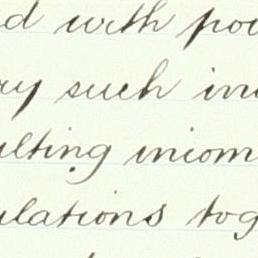 d with pow
ry such in
ulting incom
ulations tog